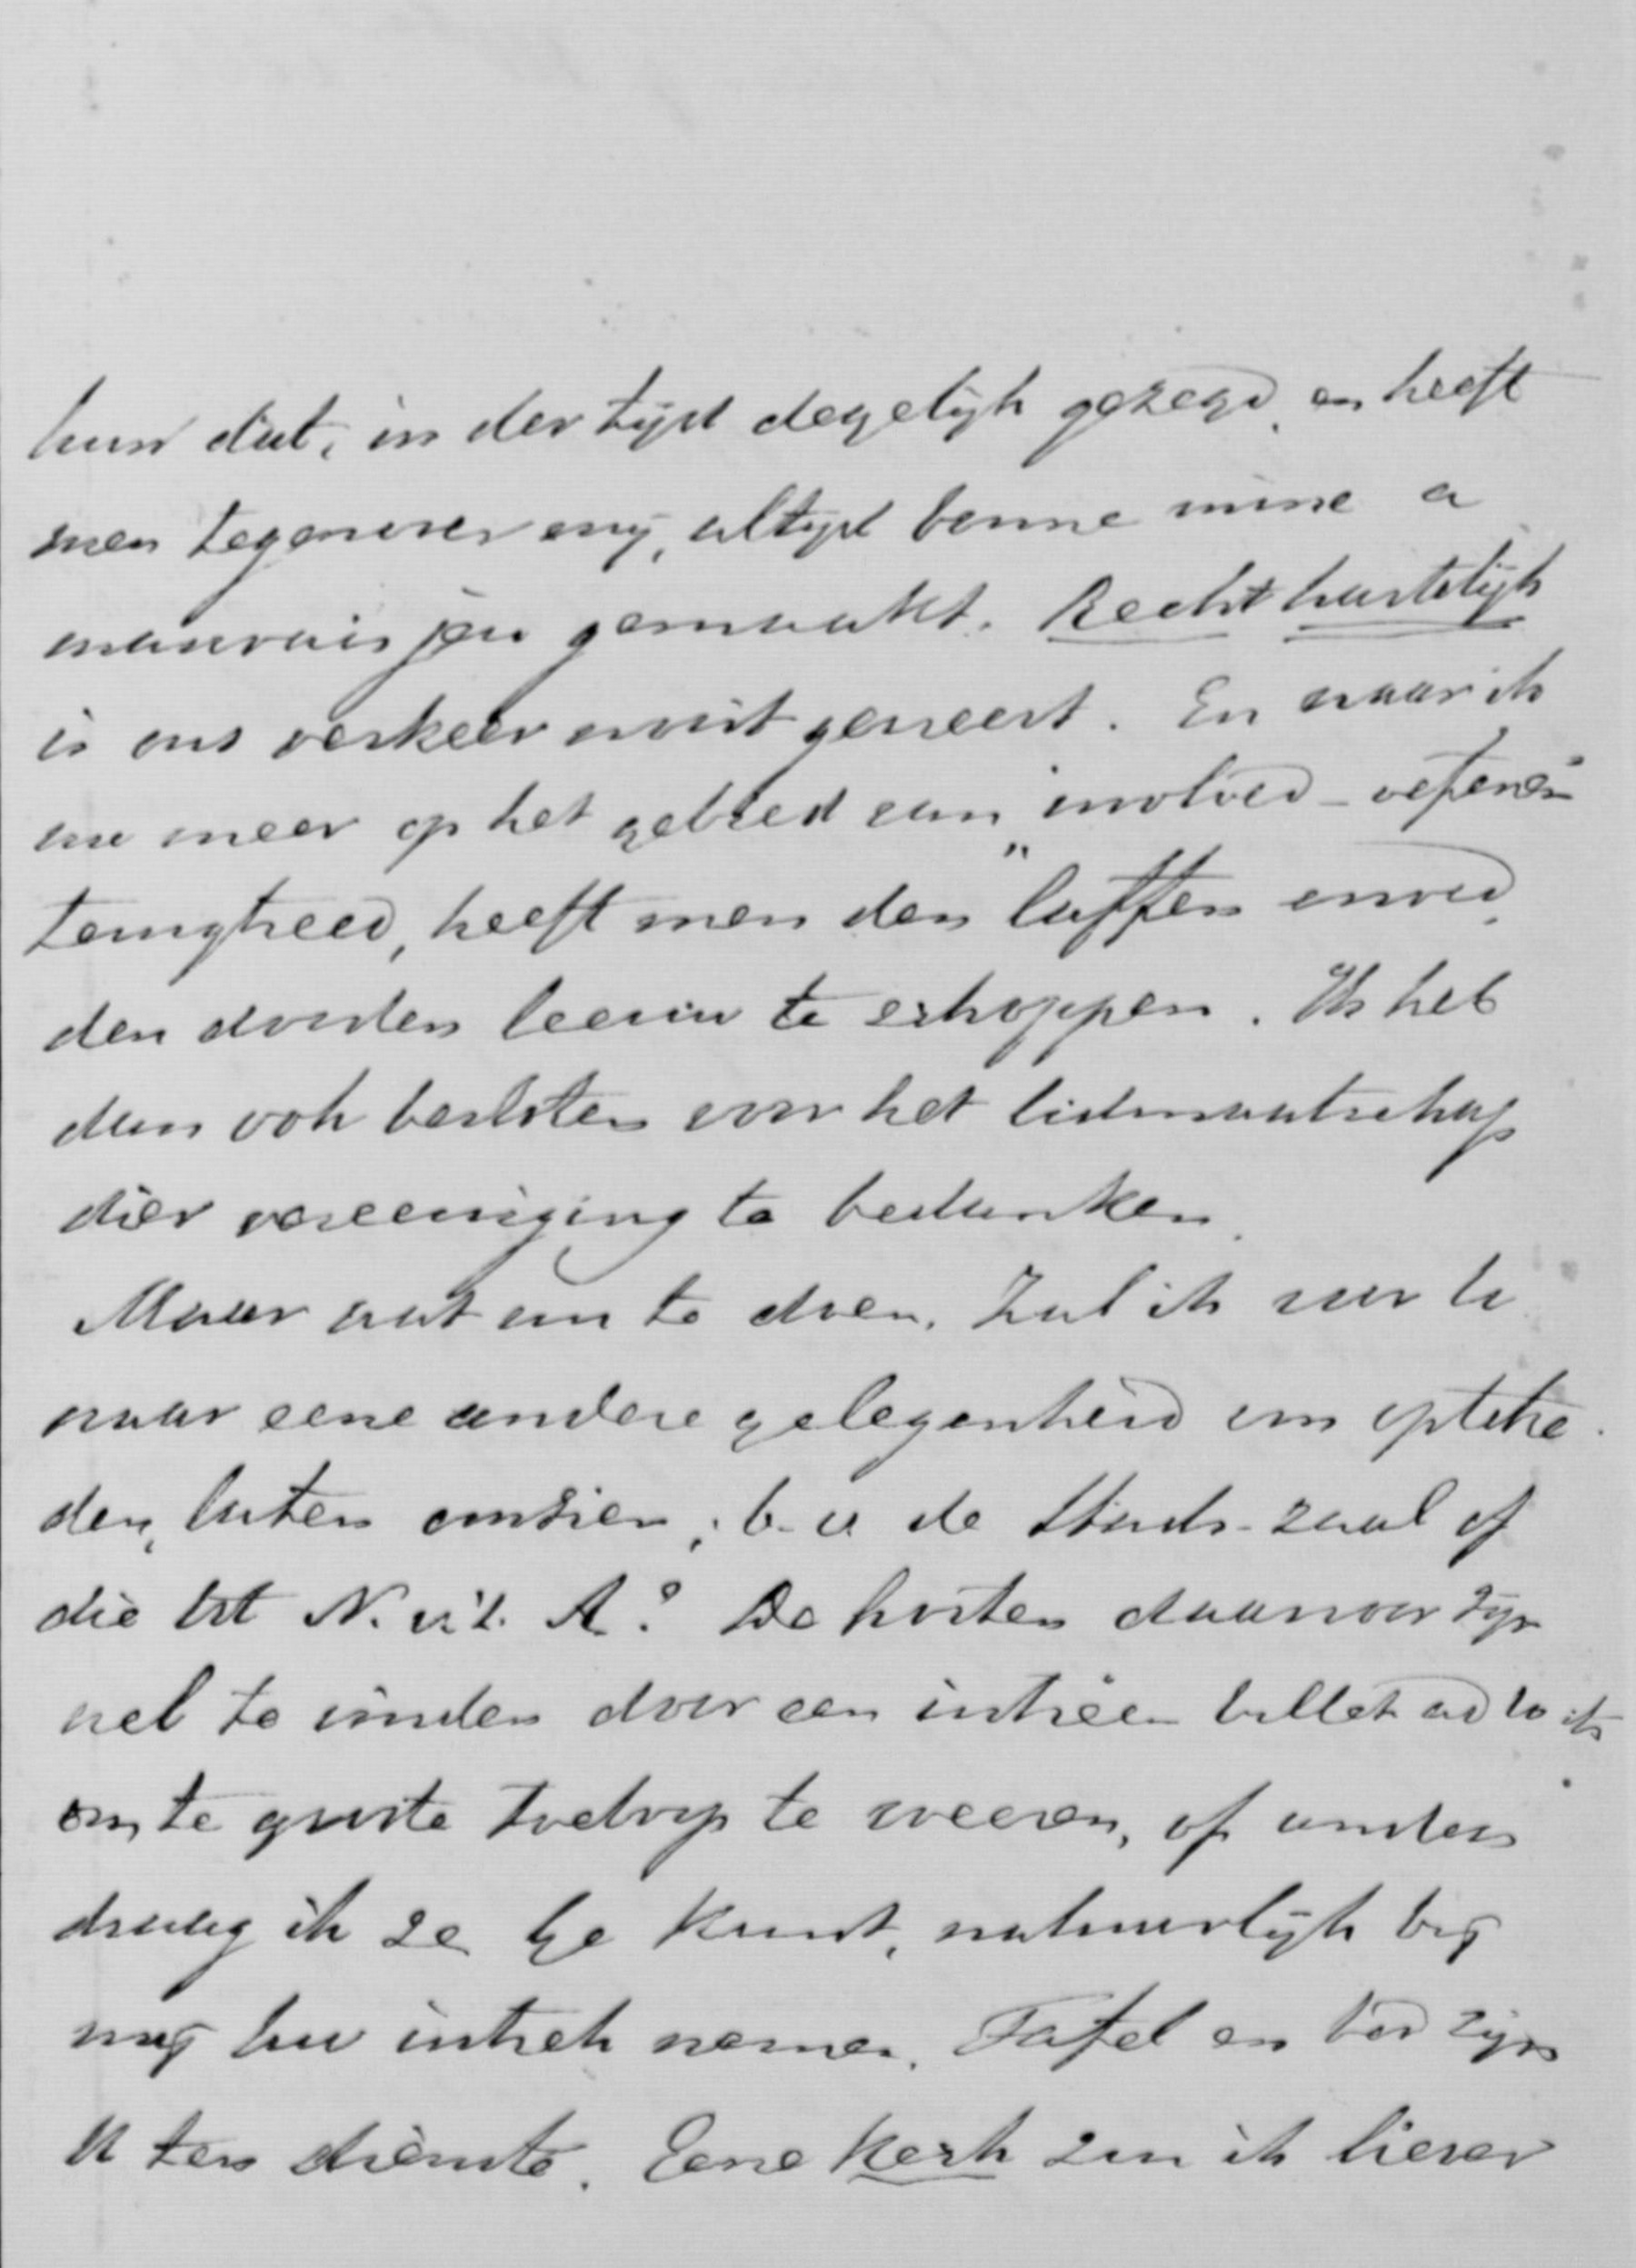 hun dat, in der tyd degelyk gezegd, en heeft
men tegenover my, altyd bonne mine a
mauvais jeu gemaakt. Recht hartelyk
is ons verkeer nooit geweest. En waar ik
nu meer op het gebied van "invloed-
tenigheed, heeft men den laffen moed
den dooden leeuw te schoppen. Ik heb
dan ook besloten voor het lidmaatschap
dier vereeniging te bedanken.
Maar wat nu te doen. Zal ik voor U
naar eene andere gelegenheid om optetre
den, laten omzien; b.v. de Stads-zaal of
die tot N. v. 't. A.? De kosten daarvoor zyn
wel te vinden door een intréen billet
om te groote toeloop te weeren, of anders
draag ik ze Ge kunt, natuurlyk by
my uw intrek nemen. Tafel en bed zyn
U ten dienste. Eene kerk zou ik liever